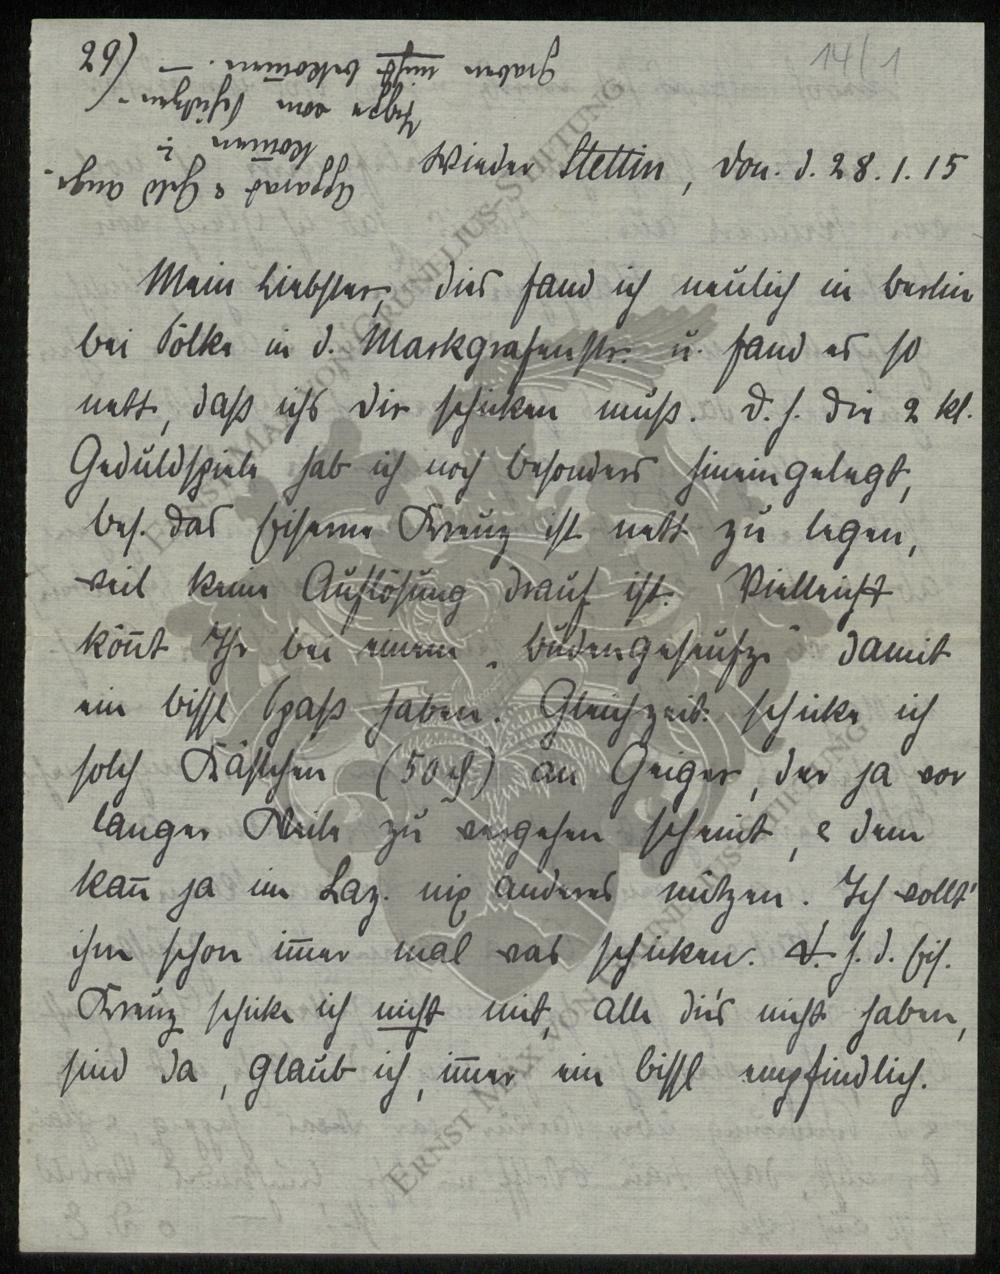 14/1
29)
Apparat & Geld ange-
kom̄en ?
Treppe vom
Graben nicht bekom̄en. –
Wieder Stettin, Don. d. 28.1.15
Mein Liebster, dies fand ich neulich in Berlin
bei Pölke in d. Markgrafenstr. u. fand es so
nett, daß ichs Dir schicken muß. D. h. die 2 kl.
Geduldspiele hab ich noch besonders hineingelegt,
bes. das Eiserne Kreuz ist nett zu legen,
weil keine Auflösung drauf ist. Vielleicht
kön̄t Ihr bei einem „Budengeseufze" damit
ein bissl Spaß haben. Gleichzeit. schicke ich
solch Kästchen (50 ₰) an Geiger, der ja vor
langer Weile zu vergehen scheint, & dem
kan̄ ja im Laz. nix anderes nützen. Ich wollt'
ihm schon im̄er mal was schicken. D. h. d. Eis.
Kreuz schicke ich nicht mit, alle die's nicht haben,
sind da, glaub ich, im̄er ein bissl empfindlich.
ERNST MAX VON GRUNELIUS-STIFTUNG
ERNST MAX VON GRUNELIUS-STIFTUNG